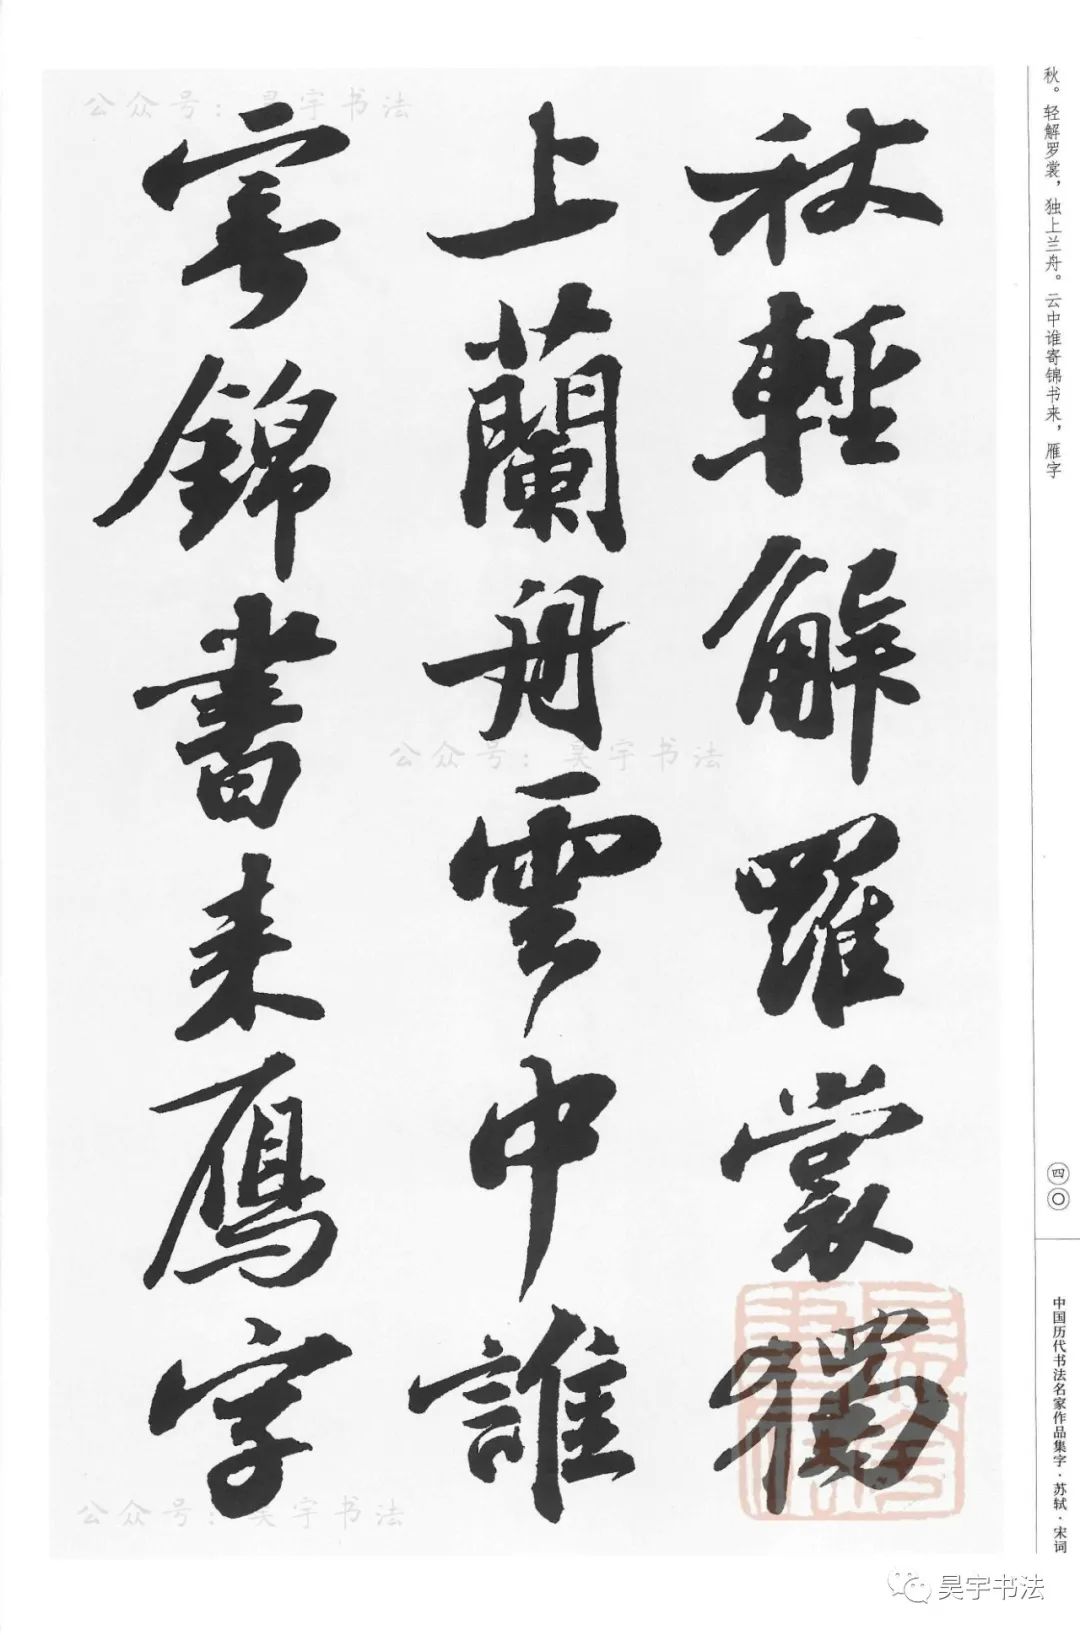 秋。轻解罗裳，独上兰舟。云中谁寄锦书来，雁字
四〇
中国历代书法名家作品集字·苏轼·宋词
秋輕解羅裳獨
上蘭舟雲中誰
寄錦書来鴈字
公众号：昊宇书法
公众号：昊宇书法
公众号：昊宇书法
昊宇书法